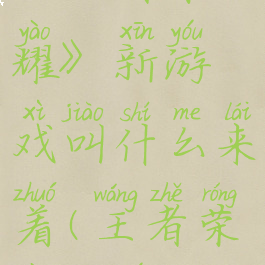 yào xīn yóu
耀》 新游
xì jiào shí me lái
戏叫什么来
zhuó wáng zhě róng
着(王者荣